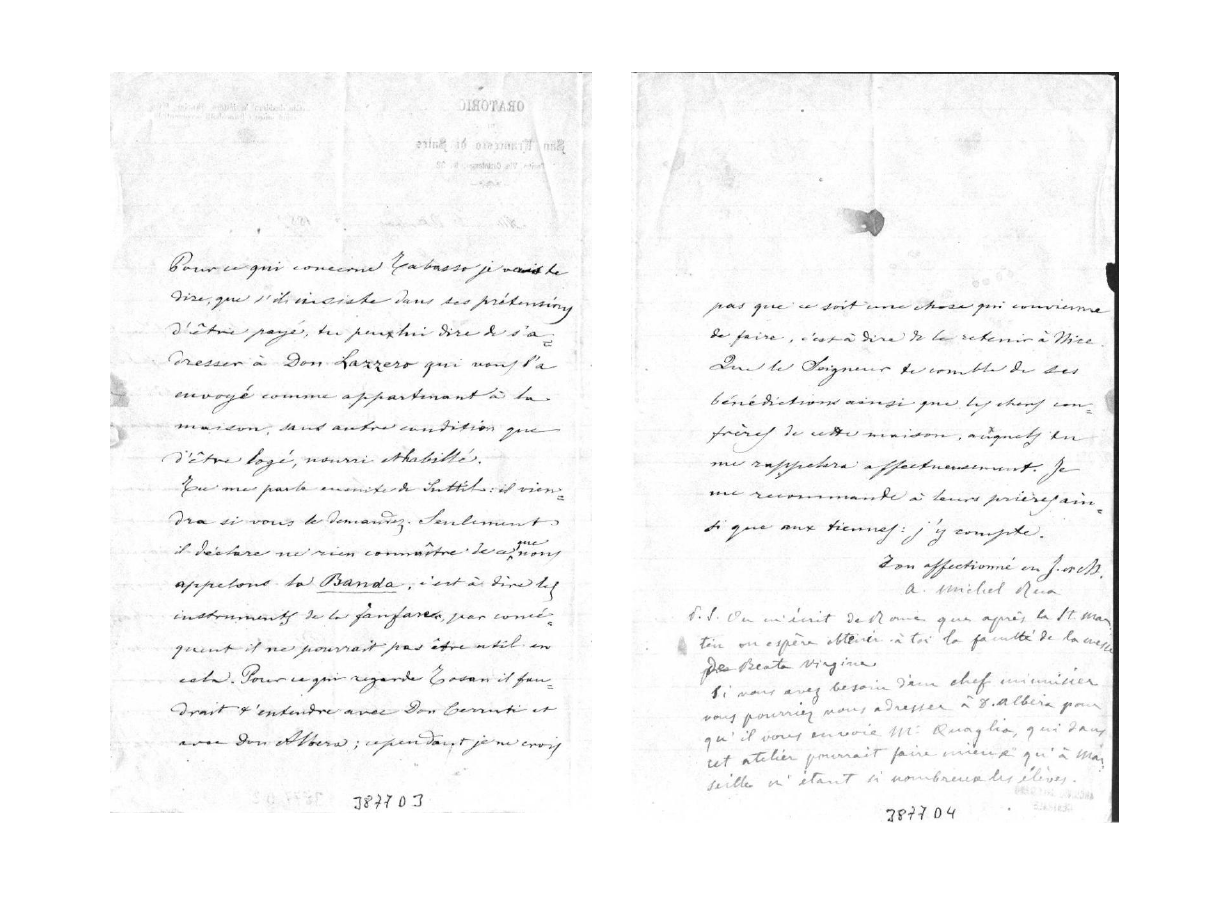 Pour ce qui concerne Tabasso je vais te
dire, que s'il insiste dans ses prétensions
d'être payé, tu peux lui dire de s'a=
dresser à Don Lazzero qui vous l'a
envoyé comme appartenant à la
maison, sans autre condition que
d'être logé, nourri et habillé.
Tu me parle ensuite de : il vien=
dra si vous le demandez. Seulement
il déclare ne rien connaître de ce que nous
appelons la Banda, c'est à dire les
instruments de la fanfare, par consé=
quent il ne pourrait pas être utile en
cela. Pour ce qui regarde Tosan il fau=
drait t'entendre avec Don Cerruti et
avec Don Albera ; cependant je ne crois
3877 D 3
pas que ce soit une chose qui convienne
de faire, c'est à dire de le retenir à Nice.
Que le Seigneur te comble de ses
bénédictions ainsi que les chers con=
frères de cette maison, auquels tu
me rappelera affectueusement. Je
me recommande à leurs prières ain=
si que aux tiennes : j'y compte.
Ton affectionné en J. et M.
Michel Rua
P. S. On m'écrit de Rome que après la St Mar
tin on espère obtenir à toi la faculté de la messe
de Beata Virgine
Si vous avez besoin d'un chef menuisier
vous pourriez vous adresser à D. Albera pour
qu'il vous envoie Mr Quaglia, qui dans
cet atelier pourrait faire mieux qu'à Mar
seille n'étant si nombreux les élèves.
3877 D 4
ORATORIO
San Francesco di Sales